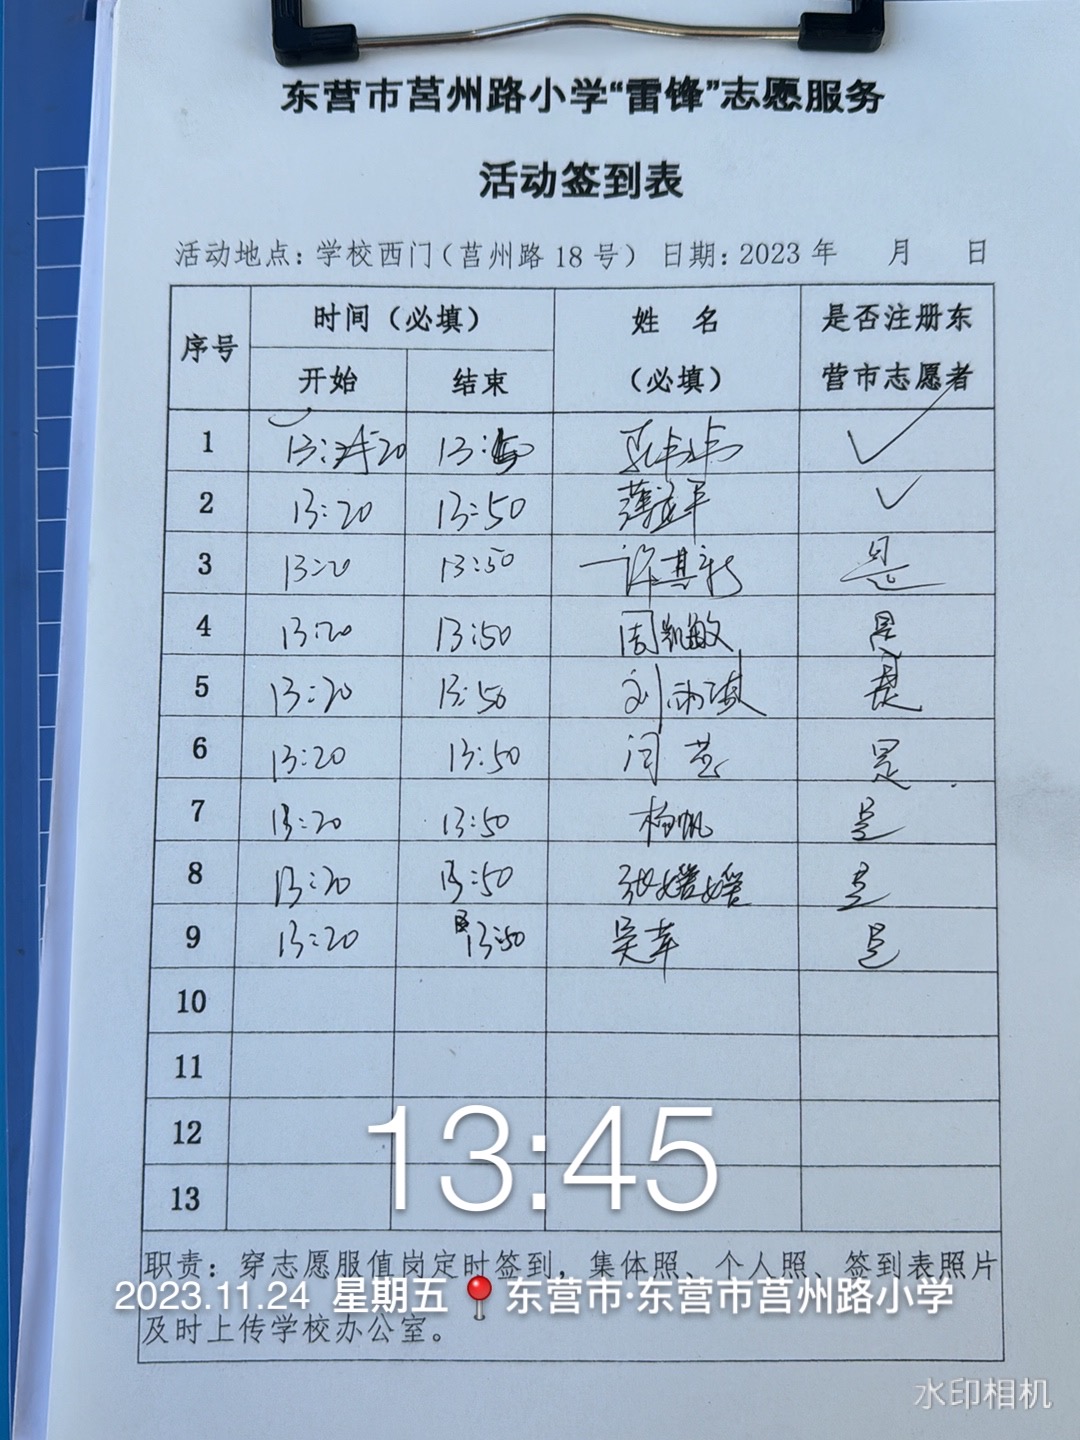 东营市莒州路小学“雷锋”志愿服务
活动签到表
活动地点：学校西门（莒州路 18 号） 日期：2023 年 月 日
序号 时间（必填） 姓 名 （必填） 是否注册东营市志愿者
开始 结束
1 13: 20 13: ✓
2 13:20 13:50 薄 ✓
3 13:20 13:50 许其新 是
4 13:20 13:50 周凯敏 是
5 13:20 13:50 刘 是
6 13:20 13:50 闫 是
7 13:20 13:50 杨帆 是
8 13:20 13:50 张媛媛 是
9 13:20 13:50 吴苹 是
10
11
12
13
13:45
职责：穿志愿服值岗定时签到，集体照、个人照、签到表照片
2023.11.24 星期五 东营市·东营市莒州路小学
及时上传学校办公室。
水印相机